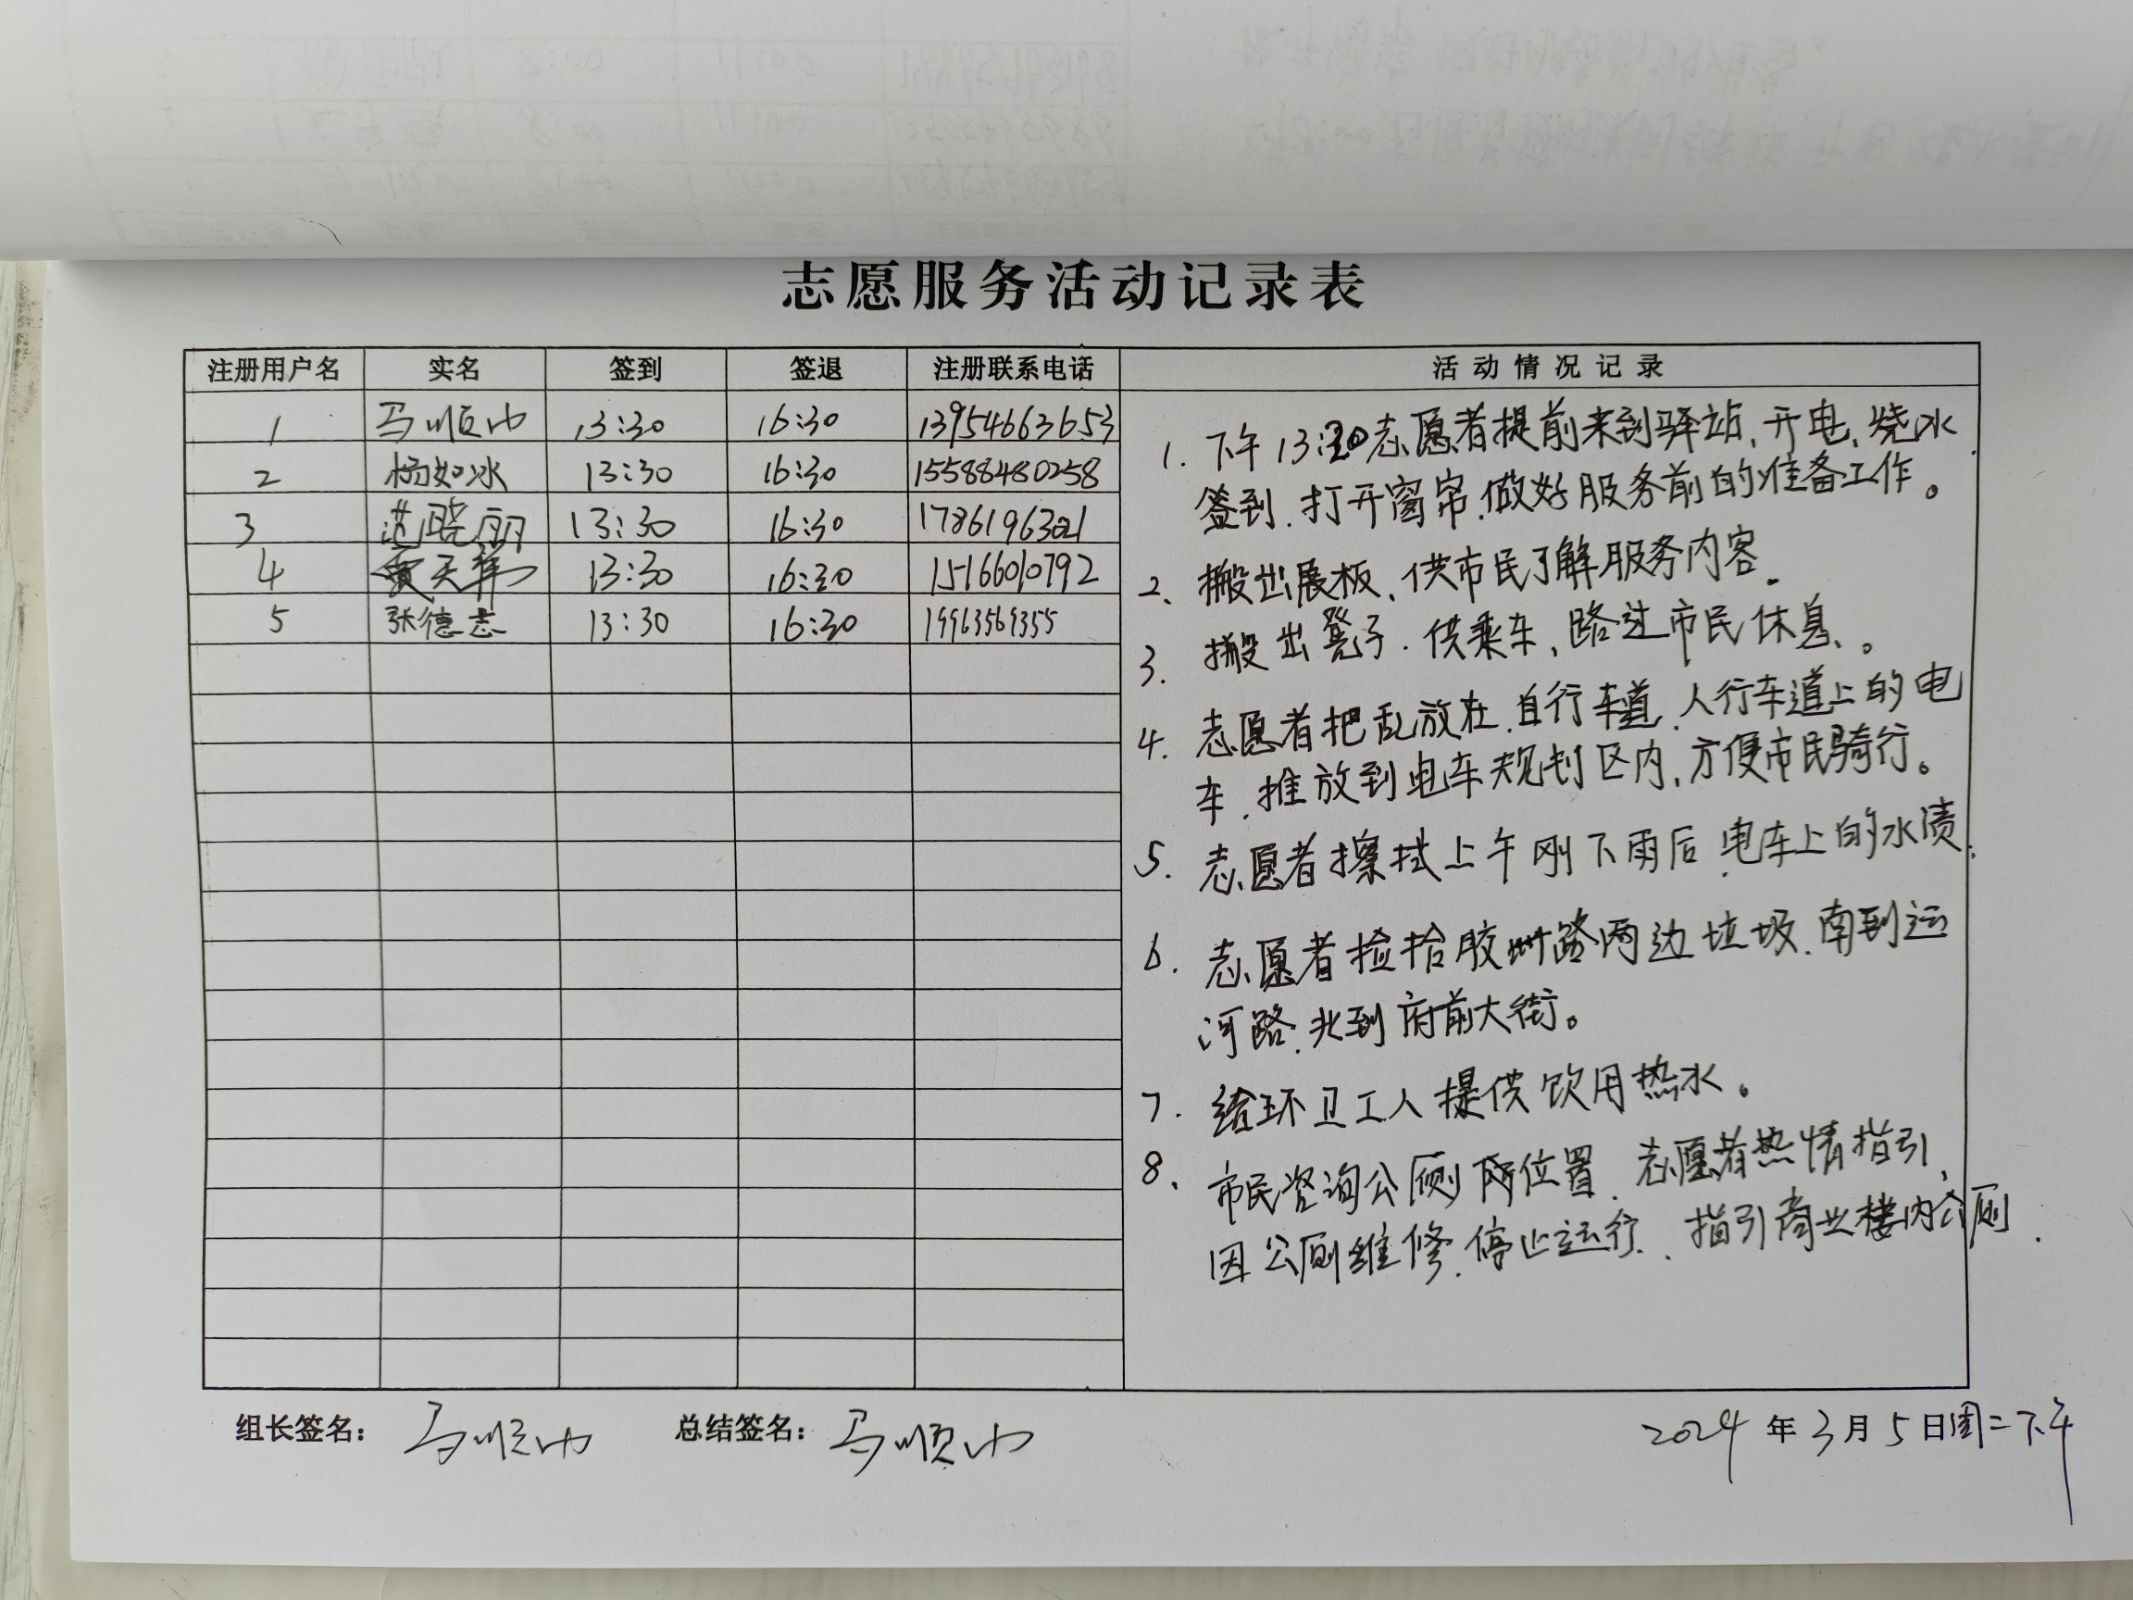 志愿服务活动记录表
注册用户名 实名 签到 签退 注册联系电话 活动情况记录
1 马顺 13:30 16:30 13954663653
2 杨如冰 13:30 16:30 15588480258
3 范晓丽 13:30 16:30 17861963021
4 贾天 13:30 16:30 15166010792
5 张德志 13:30 16:30 19963569355
1. 下午13:30志愿者提前来到驿站、开电、烧水
签到、打开窗帘、做好服务前的准备工作。
2、搬出展板、供市民了解服务内容。
3. 搬出凳子、供乘车、路过市民休息、。
4. 志愿者把乱放在自行车道、人行车道上的电
车、推放到电车规划区内,方便市民骑行。
5. 志愿者擦拭上午刚下雨后电车上的水渍.
6. 志愿者捡拾胶州路两边垃圾、南到运
河路、北到府前大街。
7. 给环卫工人提供饮用热水。
8、市民咨询公厕位置、志愿者热情指引、
因公厕维修、停止运行、指引商业楼内公厕.
组长签名: 马顺 总结签名: 马顺 2024年3月5日周二下午